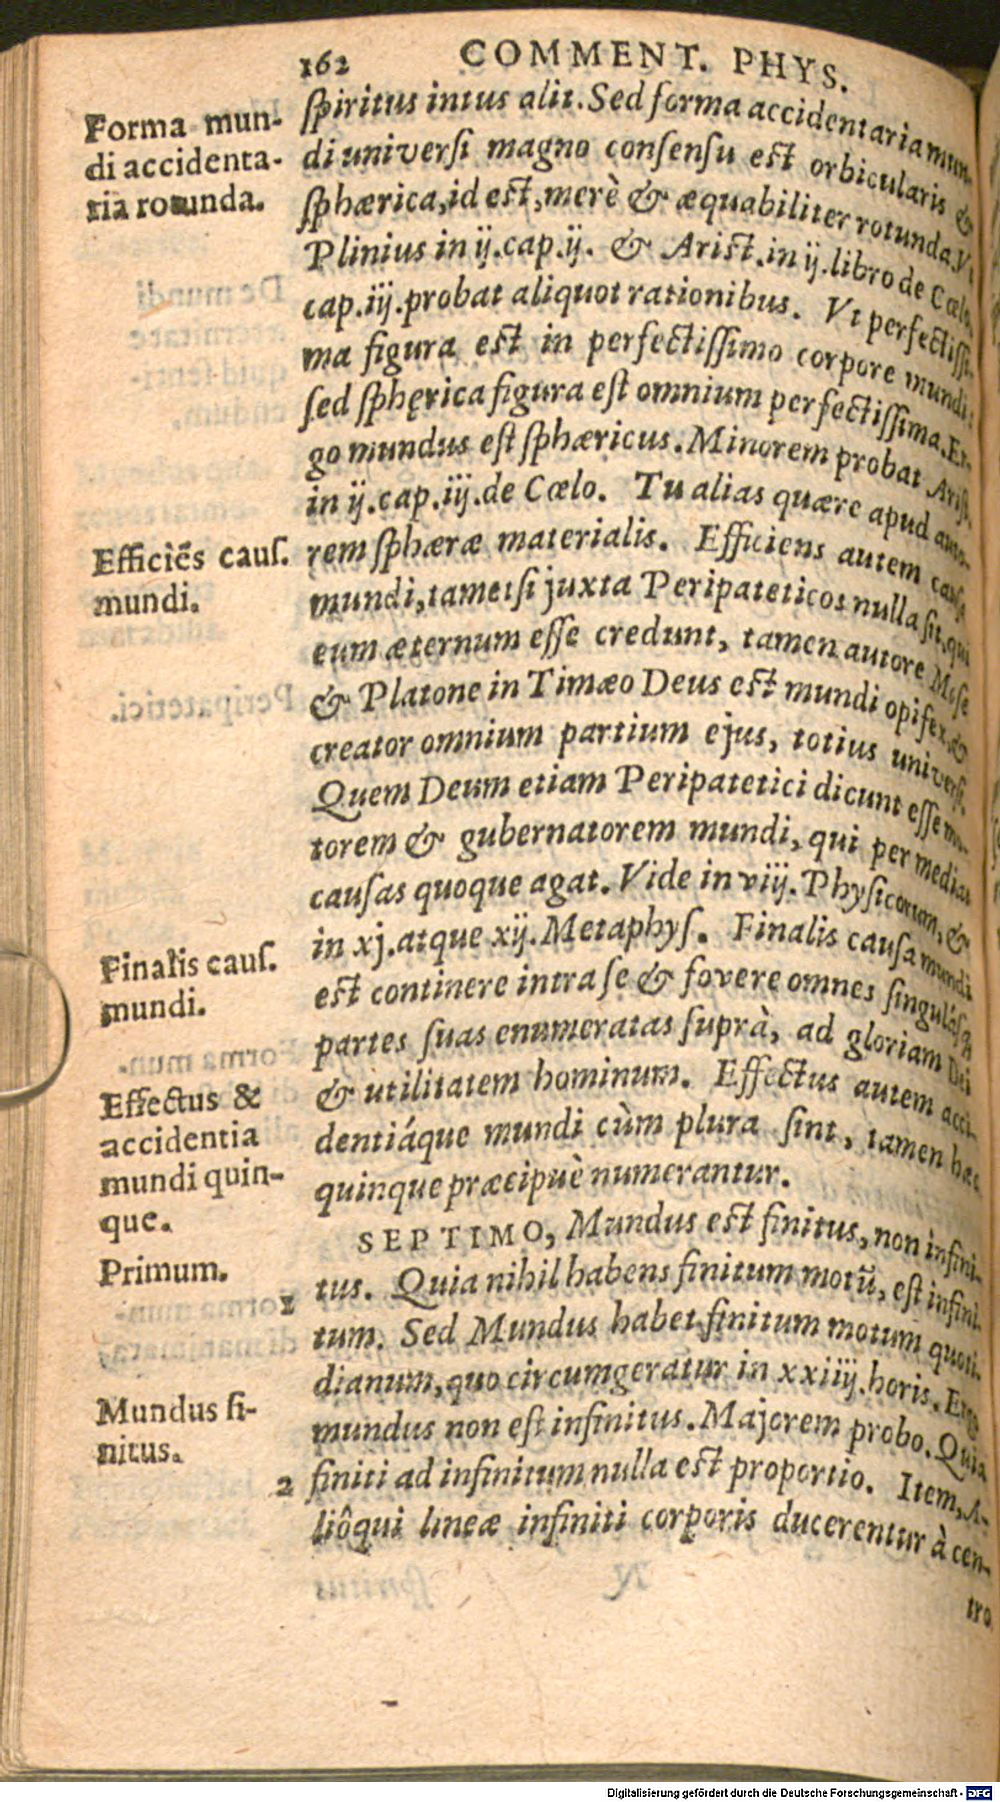 162 COMMENT. PHYS.
Forma mun-
di accidenta-
ria rotunda.
spiritus intus alit. Sed forma accidentaria mun-
di universi magno consensu est orbicularis &
sphærica, id est, merè & æquabiliter rotunda. Vt
Plinius in ij. cap. ij. & Arist. in ij. libro de Cœlo,
cap. iij. probat aliquot rationibus. Vt perfectissi-
ma figura est in perfectissimo corpore mundi:
sed sphęrica figura est omnium perfectissima. Er-
go mundus est sphæricus. Minorem probat Arist.
in ij. cap. iij. de Cœlo. Tu alias quære apud auto-
Efficiẽs caus.
mundi.
rem sphæræ materialis. Efficiens autem causa
mundi, tametsi juxta Peripateticos nulla sit, qui
eum æternum esse credunt, tamen autore Mose
& Platone in Timæo Deus est mundi opifex, &
creator omnium partium ejus, totius universi.
Quem Deum etiam Peripatetici dicunt esse mo-
torem & gubernatorem mundi, qui per medias
causas quoque agat. Vide in viij. Physicorum, &
Finalis caus.
mundi.
in xj. atque xij. Metaphys. Finalis causa mundi
est continere intra se & fovere omnes singulásq;
partes suas enumeratas suprà, ad gloriam Dei
Effectus &
accidentia
mundi quin-
que.
& utilitatem hominum. Effectus autem acci-
dentiáque mundi cùm plura sint, tamen hæc
quinque præcipuè numerantur.
Primum.
SEPTIMO, Mundus est finitus, non infini-
1 tus. Quia nihil habens finitum motũ, est infini-
tum. Sed Mundus habet finitum motum quoti-
dianum, quo circumgeratur in xxiiij. horis. Ergo
Mundus fi-
nitus.
mundus non est infinitus. Majorem probo. Quia
2 finiti ad infinitum nulla est proportio. Item, A-
liôqui lineæ infiniti corporis ducerentur à cen-
tro
Digitalisierung gefördert durch die Deutsche Forschungsgemeinschaft - DFG